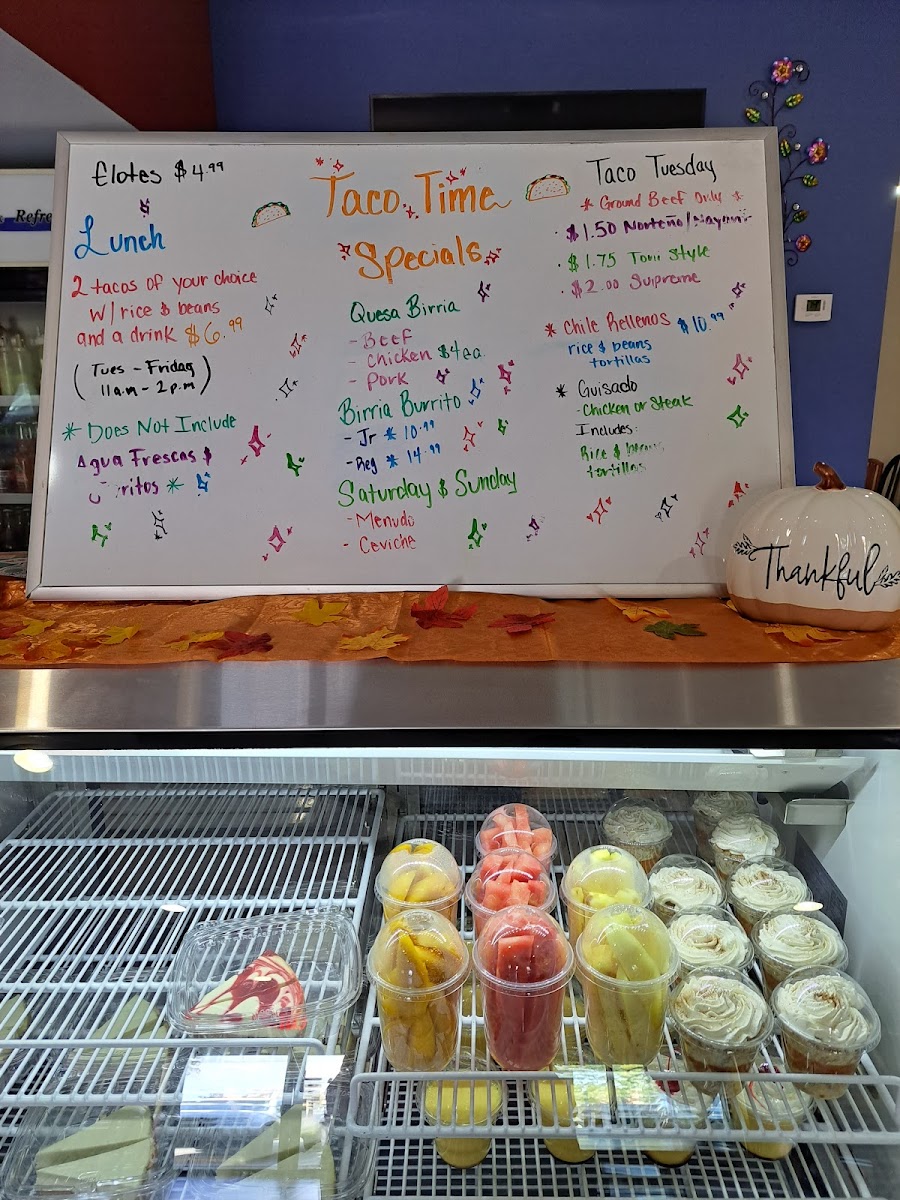 Refre
Elotes $4.99
Lunch
2 tacos of your choice
w/ rice & beans
and a drink $6.99
(Tues - Friday
11a.m - 2p.m)
* Does Not Include
Agua Frescas &
Taco Time
Specials
Quesa Birria
- Beef
- Chicken $4ea
- Pork
Birria Burrito
- Jr * 10.99
- Reg * 14.99
Saturday & Sunday
- Menudo
- Ceviche
Taco Tuesday
* Ground Beef Only *
· $1.50 Norteño/
· $1.75 Style
· $2.00 Supreme
* Chile Rellenos $10.99
rice & beans
tortillas
* Guisado
- Chicken or Steak
Includes:
Rice & beans
tortillas
Thankful